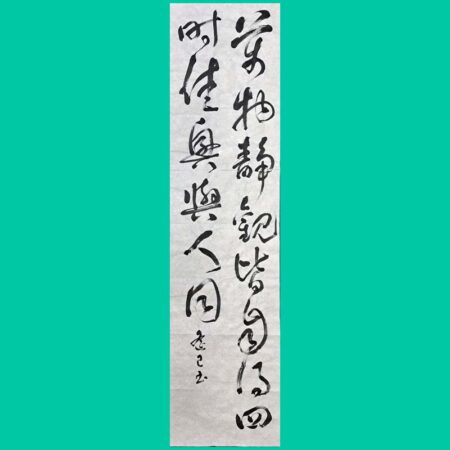 萬物靜觀皆自得四
時佳興與人同